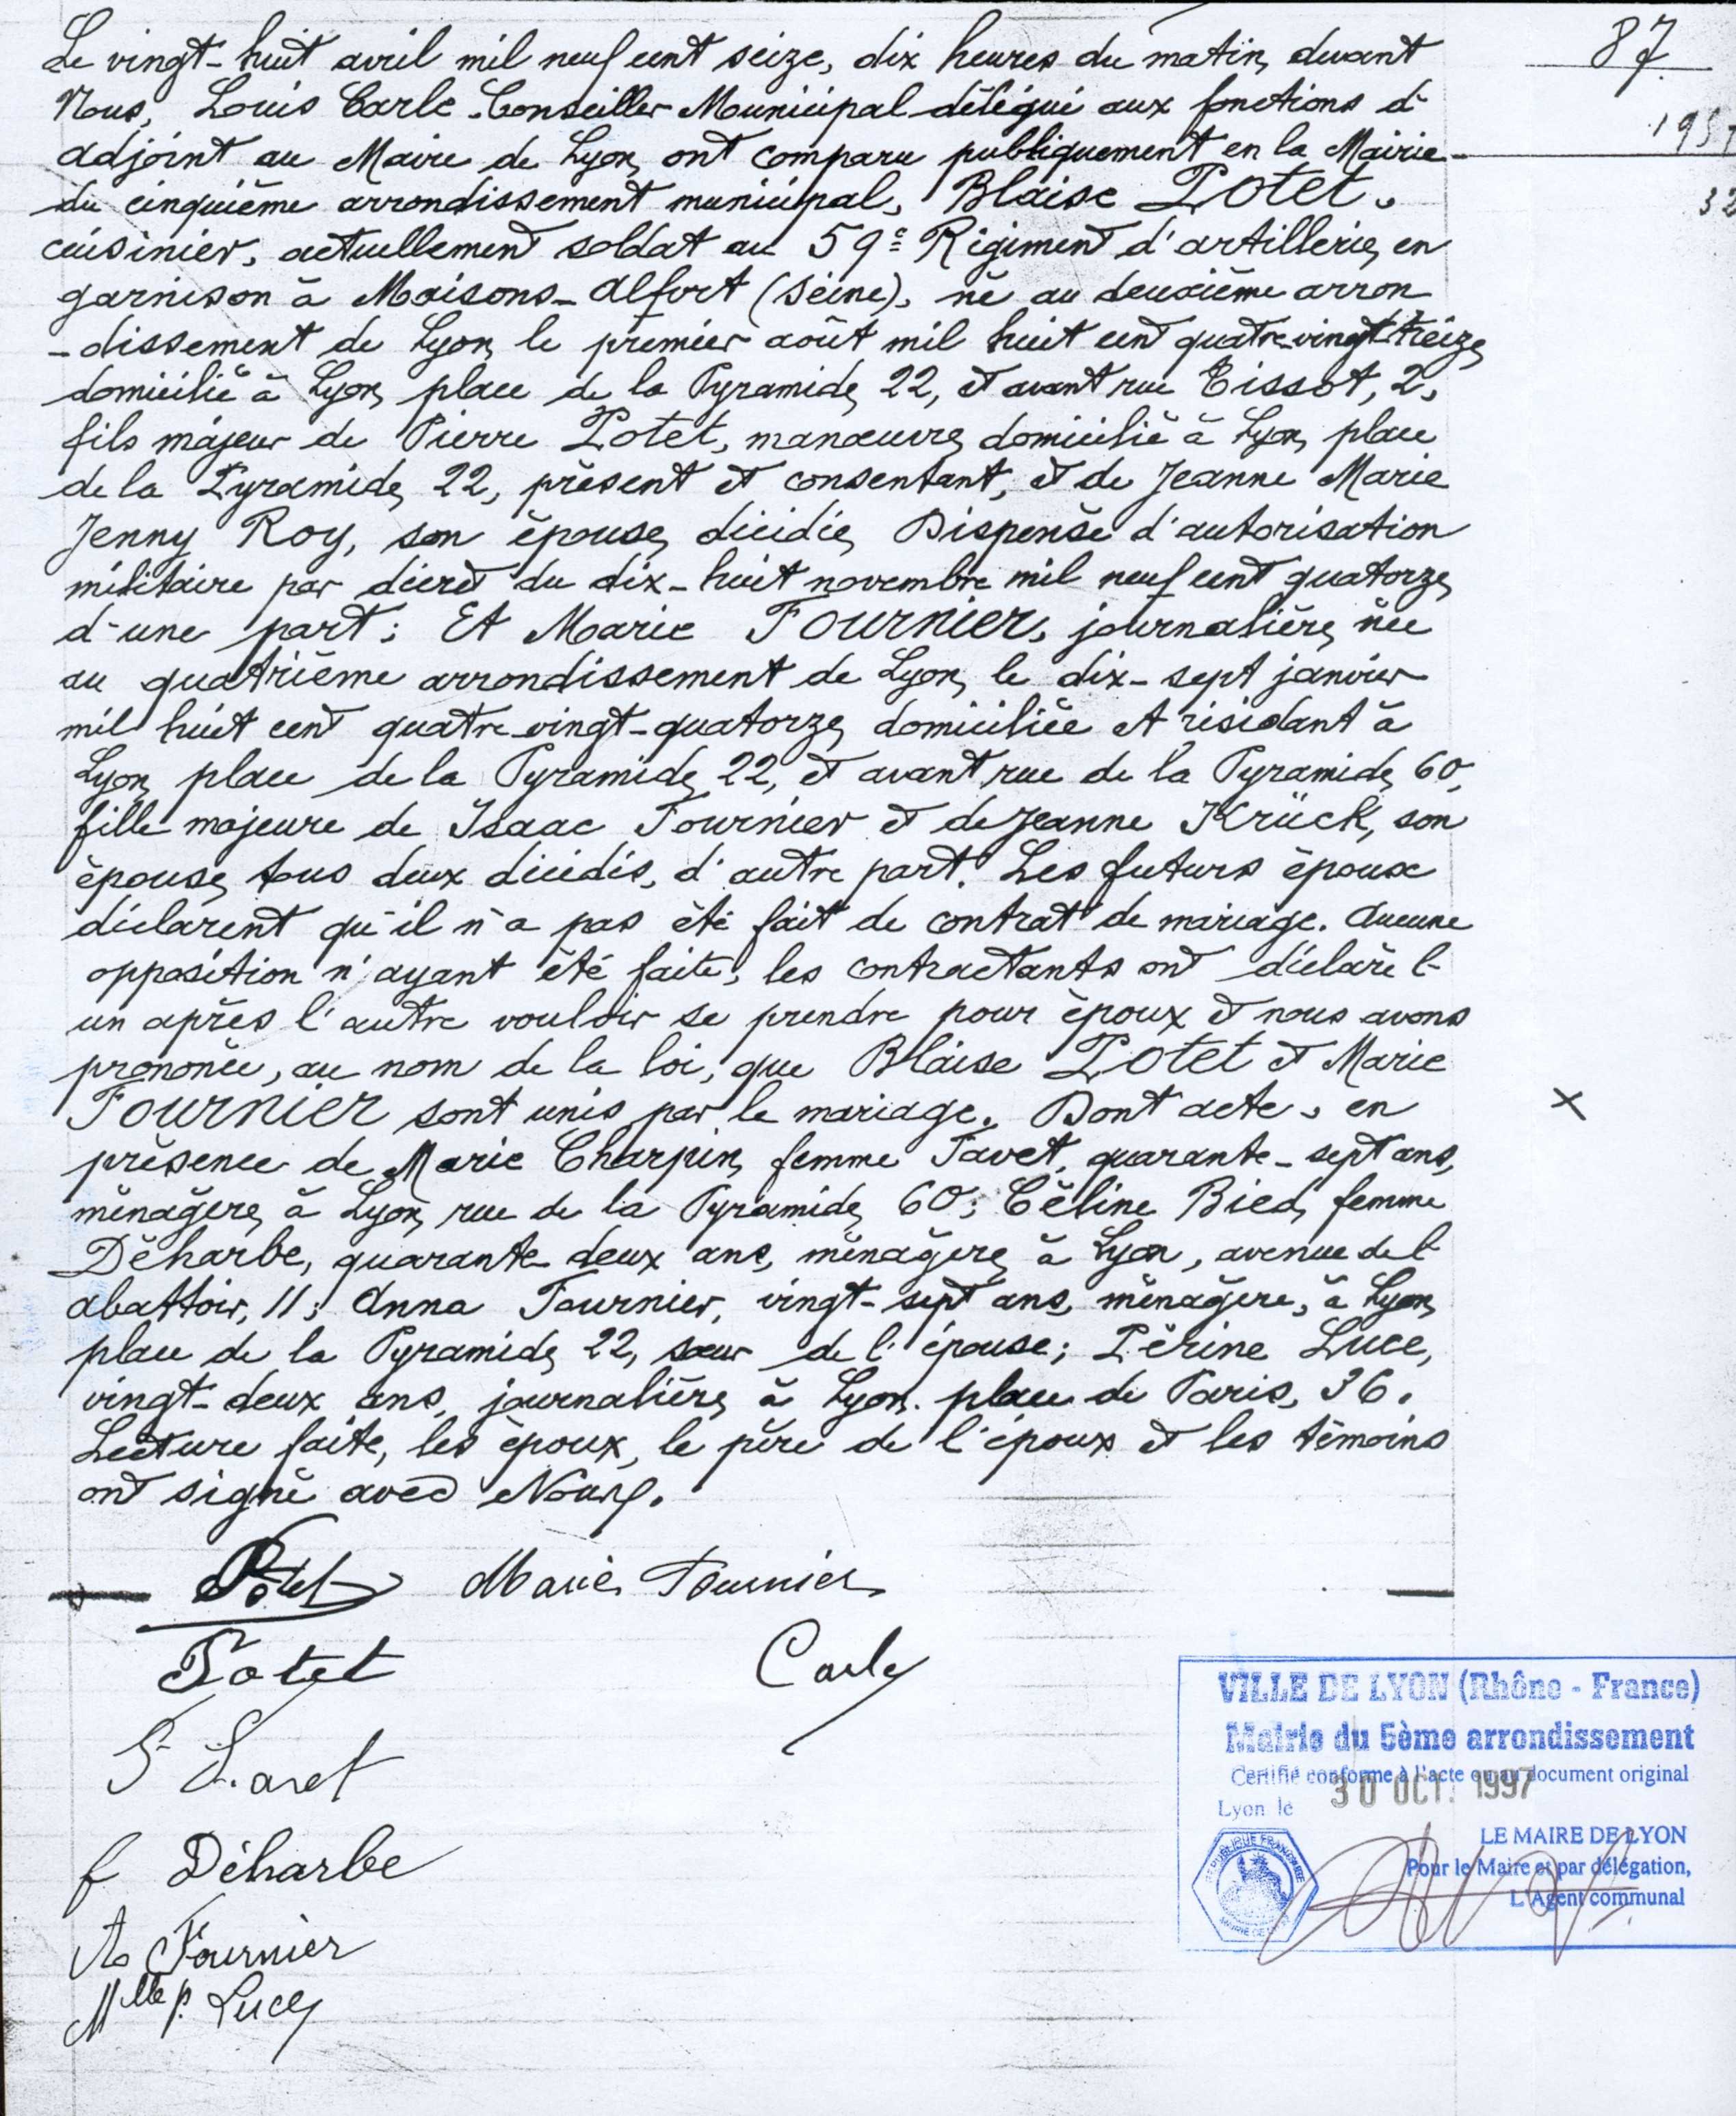 87
Le vingt-huit avril mil neuf cent seize, dix heures du matin, devant
Nous, Louis Carle Conseiller Municipal délégué aux fonctions d'
adjoint au Maire de Lyon, ont comparu publiquement en la Mairie
du cinquième arrondissement municipal, Blaise POTET,
cuisinier, actuellement soldat au 59e Régiment d'artillerie, en
garnison à Maisons-Alfort (Seine), né au deuxième arron
-dissement de Lyon, le premier août mil huit cent quatre-vingt-treize,
domicilié à Lyon, place de la Pyramide, 22, et avant rue Tissot, 2,
fils majeur de Pierre Potet, manœuvre, domicilié à Lyon, place
de la Pyramide, 22, présent et consentant, et de Jeanne Marie
Jenny Roy, son épouse, décédée, Dispensé d'autorisation
militaire par décret du dix-huit novembre mil neuf cent quatorze,
d'une part; Et Marie FOURNIER, journalière, née
au quatrième arrondissement de Lyon, le dix-sept janvier
mil huit cent quatre-vingt-quatorze, domiciliée et résidant à
Lyon, place de la Pyramide, 22, et avant rue de la Pyramide, 60,
fille majeure de Isaac Fournier et de Jeanne Krück, son
épouse, tous deux décédés, d'autre part. Les futurs époux
déclarent qu'il n'a pas été fait de contrat de mariage. Aucune
opposition n'ayant été faite, les contractants ont déclaré l'
un après l'autre vouloir se prendre pour époux et nous avons
prononcé, au nom de la loi, que Blaise POTET et Marie
FOURNIER sont unis par le mariage. Dont acte, en
présence de Marie Charpin, femme Favet, quarante-sept ans,
ménagère, à Lyon, rue de la Pyramide, 60; Céline Bied, femme
Déharbe, quarante-deux ans, ménagère, à Lyon, avenue de l'
abattoir, 11; Anna Fournier, vingt-sept ans, ménagère, à Lyon,
place de la Pyramide, 22, sœur de l'épouse; Périne Luce,
vingt-deux ans, journalière, à Lyon, place de Paris, 36.
Lecture faite, les époux, le père de l'époux et les témoins
ont signé avec Nous.
Potet Marie Fournier
Potet Carle
f Déharbe
A Fournier
Mlle P. Luce
VILLE DE LYON (Rhône - France)
Mairie du 5ème arrondissement
Certifié conforme à l'acte ou au document original
Lyon le 30 OCT. 1997
LE MAIRE DE LYON
Pour le Maire et par délégation,
L'Agent communal